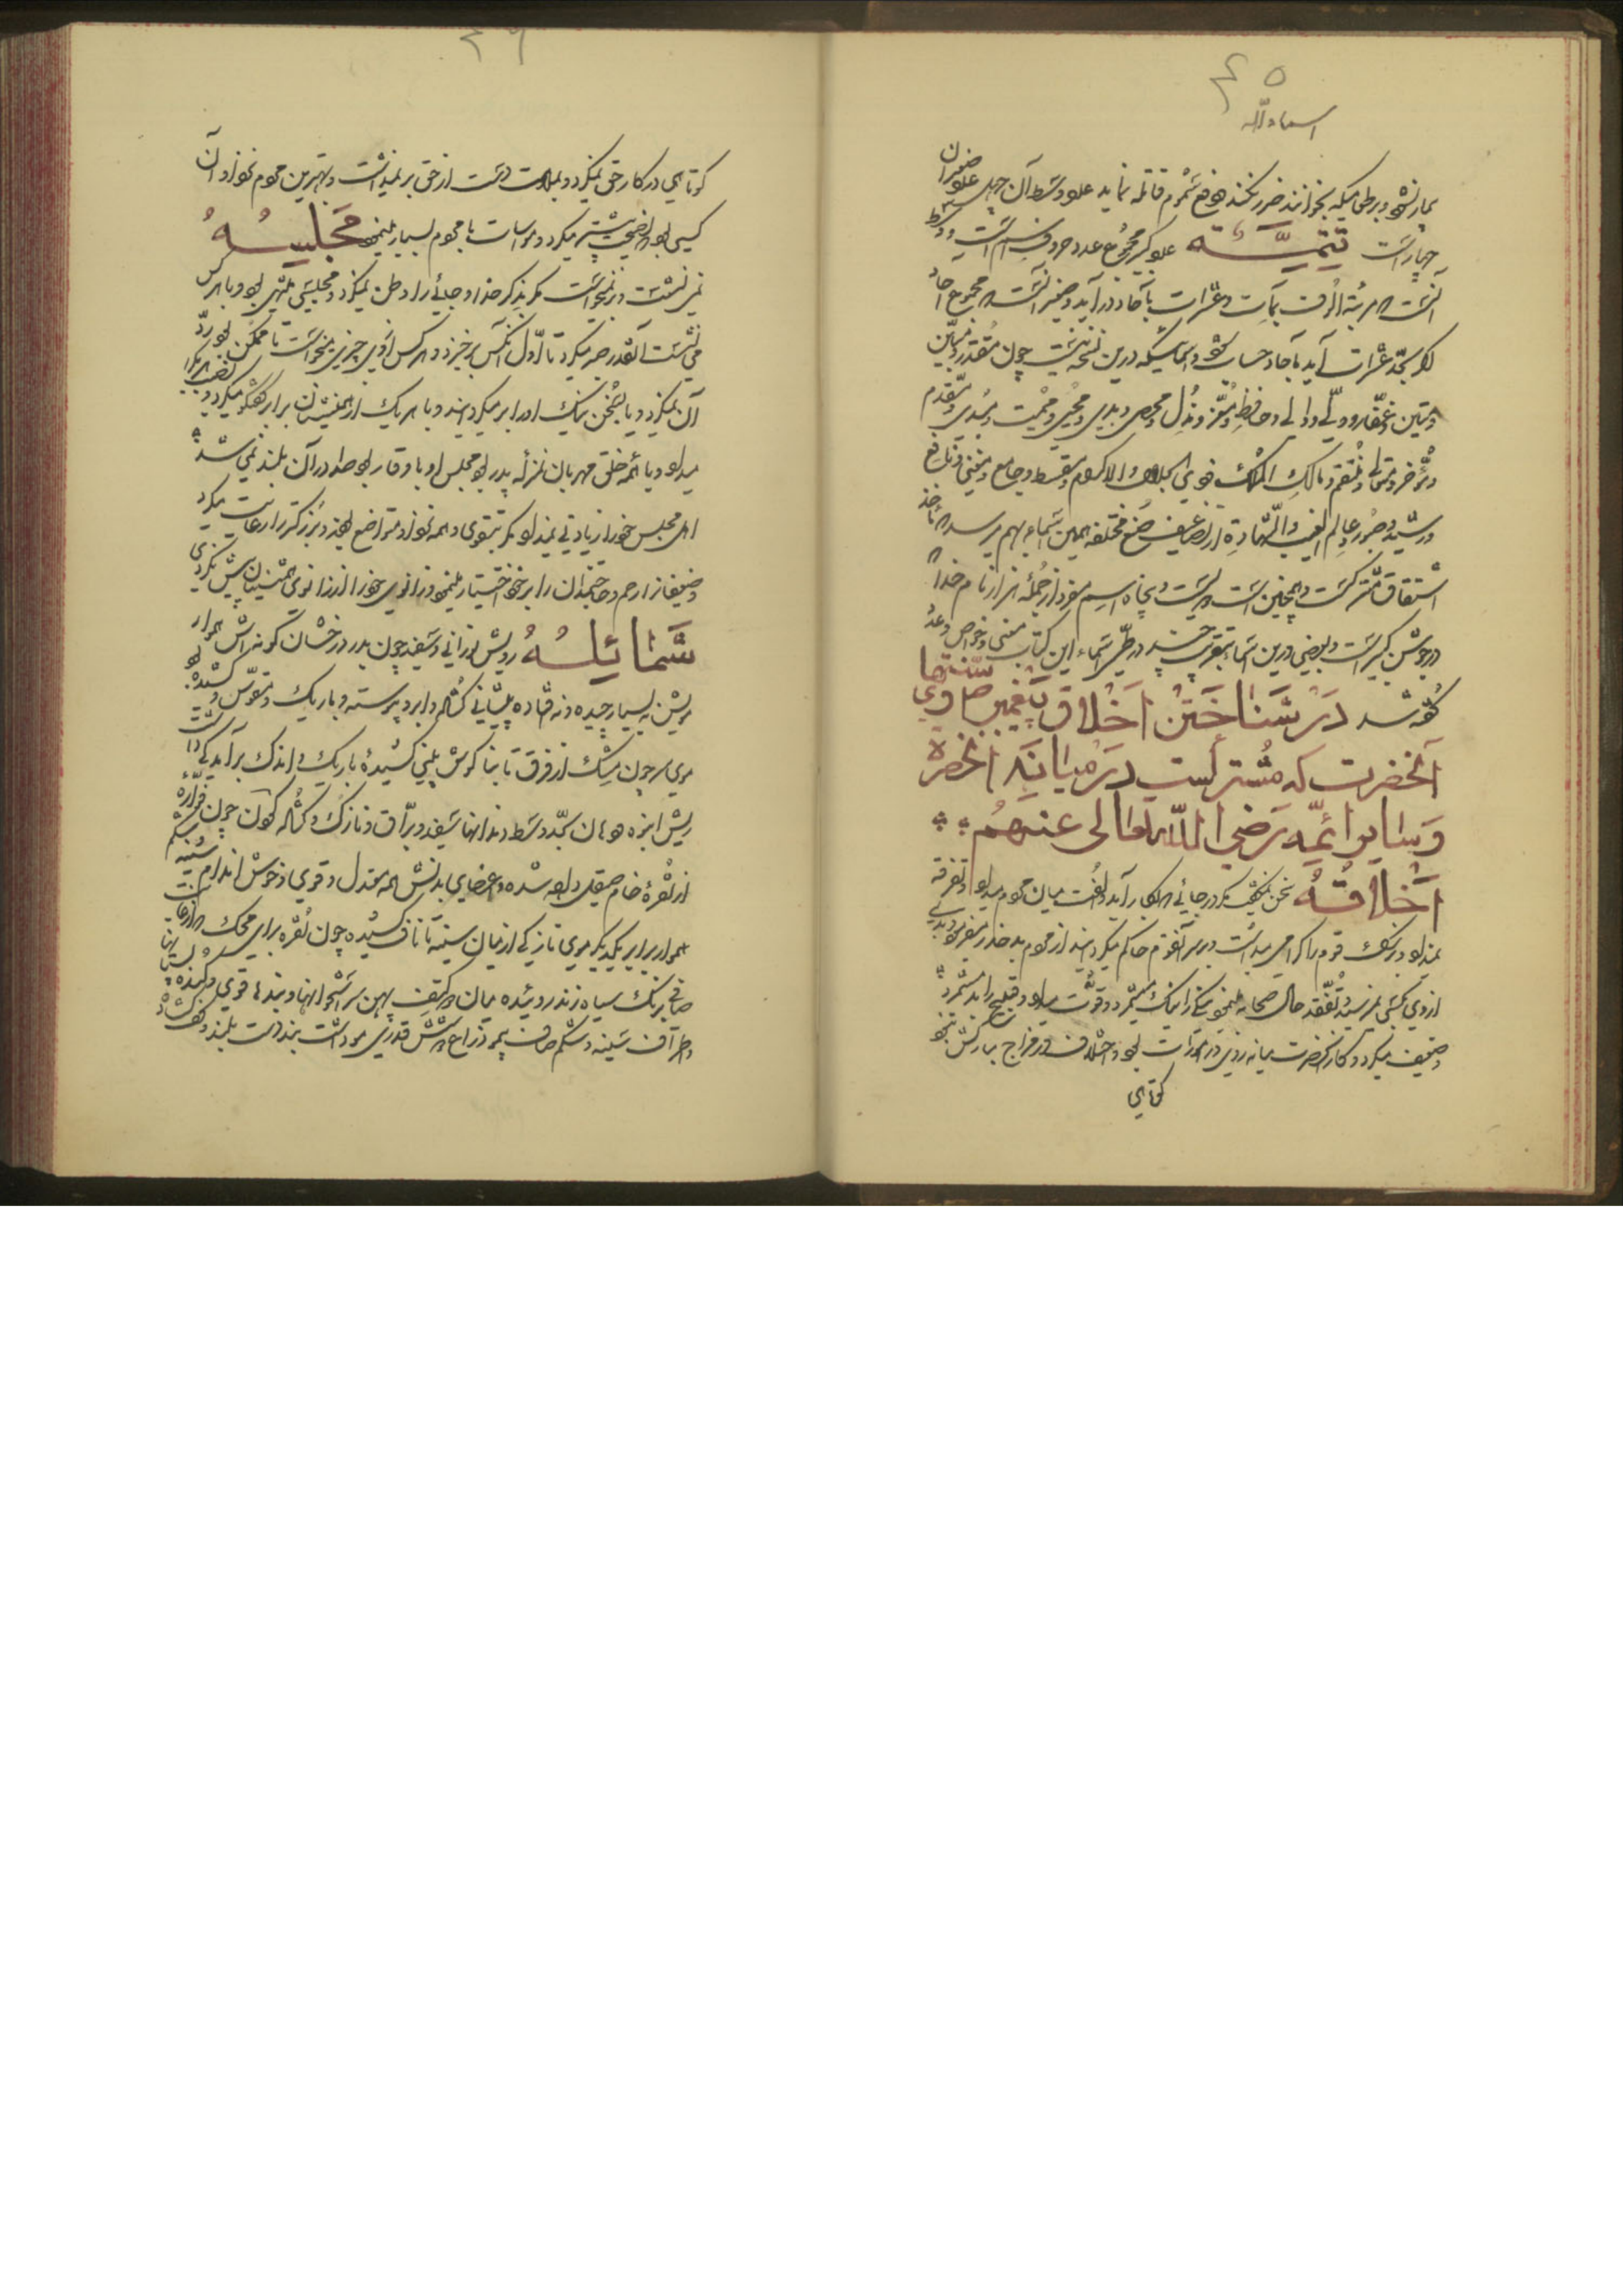 ۴۵
اسماء الله
بیمار نشود و بر طعامیکه بخوانند ضرر نکند دفع سموم قاتله نماید عدد وسط آن چهل عدد صغیر آن
چهار است تتمّه عدد کبیر مجموع عدد حروف اسم است و وسط
آنست که مرتبهٔ الوف بمآت و عشرات بآحاد در آید و صغیر آنست که مجموع
که بحدّ عشرات آید بآحاد حساب شود و اسمائیکه درین نسخه نیست چون مقتدر و مبین
و متین و غفّار و ولی و والی و حافظ و معزّ و مذلّ و محصی و بدیع و محیی و ممیت و مبدی و مقدّم
و مؤخّر و متعالی و منتقم و مالک الملک ذوی الجلال و الاکرام و مقسط و جامع و مغنی و نافع
و رشید و صبور و عالم الغیب والشّهادة از تضاعیف صیغ مختلفه همین اسماء بهم میرسد که مأخذ
اشتقاق مشترکست و همچنین است دویست و پنجاه اسم مفرد از جملهٔ هزار نام خدا که
در جوشن کبیر است و بعضی درین اسماء بتقریب در طی اسماء این کتاب معنی و خواص و عدد
گفته شد در شناختن اخلاق پیغمبر ص و سنّتهای
آنحضرت که مشترکست در میانه آنحضرة
و سایر ائمّه رضی الله تعالی عنهم
اخلاقه سخن نمیگفت مگر در جائی که بکار آید و الفت میان مردم میداد و تفرقه
نمیداد و بزرگ قوم را گرامی میداشت و بر سر آنقوم حاکم میگردانید از مردم بد حذر میفرمود و بدی
از روی کسی نمیرسید و تفقد حال صحابه مینمود نیک را نیک میشمرد و قوّت میداد و قبیح را بد میشمرد
و ضعیف میکرد و کار آنحضرت میانه روی در امورات بود و اختلاف در مزاج مبارکش نبود
کوتاهی
۴۶
کوتاهی در کار حق نمیکرد و بملامت دست از حق بر نمیداشت و بهترین مردم نزد او آن
کسی بود که نصیحت بیشتر میکرد و مواسات با مردم بسیار مینمود مجلسه
نمی نشست و بر نمیخواست مگر بذکر خدا و جائی را وطن نمیکرد و مجلسی که منتهی بود و با هر کس
می نشست آنقدر صبر میکرد تا اوّل آنکس برخیزد و هر کس از وی چیزی میخواست تا ممکن بود ردّ
آن نمیکرد و یا بسخن نیک او را بر میگردانید و با هر یک از همنشینان برابر گفتگو میکرد و
میداد و با همه خلق مهربان بمنزلهٔ پدر بود مجلس او با وقار بود صدا در آن بلند نمی شد
اهل مجلس خود را زیادتی نمیداد مگر بتقوی و همه نزد او متواضع بودند و بزرگتر را رعایت میکرد
و ضعیفانرا رحم و حاجتمندان را بر خود اختیار مینمود و زانوی خود را از زانوی همنشینان پیش نکردی
شمائله رویش نورانی و سفید چون بدر درخشان گونه اش هموار
مویش نه بسیار پیچیده و نه افتاده پیشانی گشاده ابرو پیوسته و باریک و مقوّس و کشیده بود
موی سر چون مشک از فرق تا بنا گوش بینی کشیدهٔ باریک و اندک بر آمدگی داشت
ریش انبوه دهان بحدّ وسط دندانها سفید و برّاق و نازک و گشاده گردن چون فوّاره
از نقرهٔ خام صیقل داده شده و اعضای بدنش همه معتدل و قوی و خوش اندام سینه و شکم
هموار برابر یکدیگر موی نازکی از میان سینه تا ناف کشیده چون نقره برای محک
صافی برنگ سیاه زنند روئیده میان دو کتف پهن سر استخوانها و بندها قوی و گنده
و اطراف سینه و شکم صاف بی مو ذراع و دوشش قدری مو داشت بند دست بلند و کف گشاد